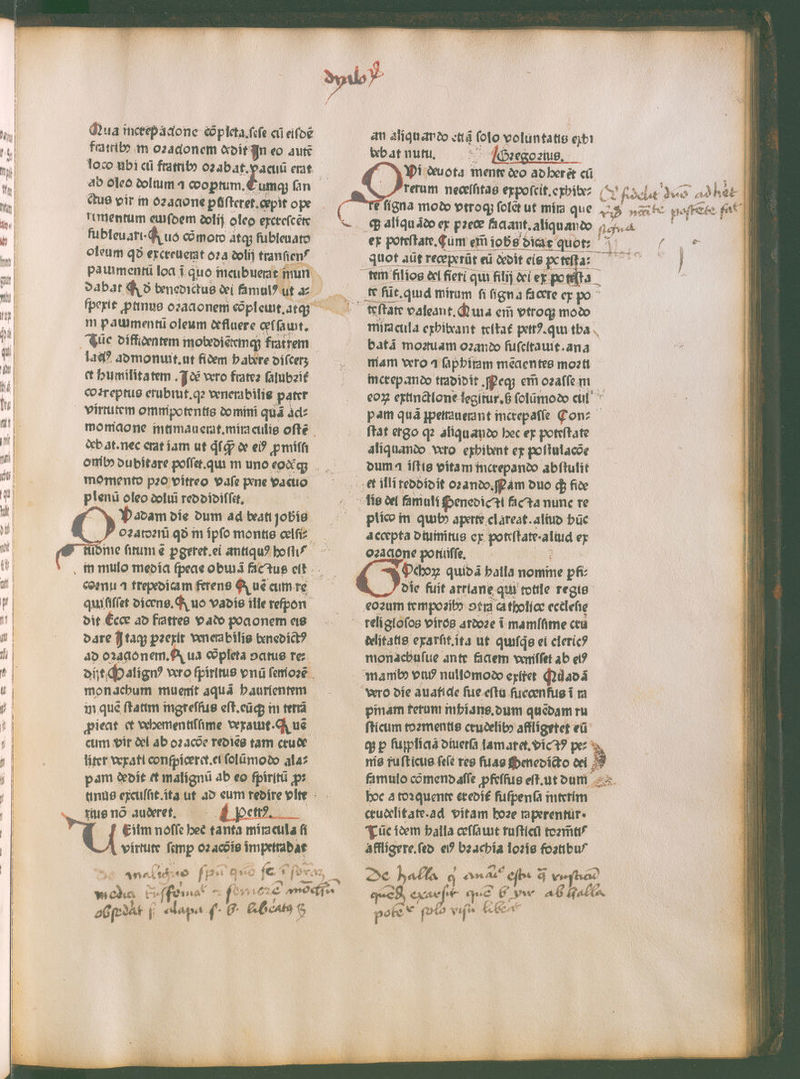 Qua increpacione cōpleta.sese cū eisdē
fratribꝰ in oracionem dedit In eo autē
loco ubi cū fratribꝰ orabat.vacuū erat
ab oleo dolium ⁊ coopertum. Cumqꝫ san
ctus vir in oracione psisteret.cepit ope
rimentum eiusdem dolij oleo excrescēte
subleuari. Quo cōmoto atqꝫ subleuato
oleum qd̄ excreuerat ora dolij transiens
pauimentū loci ī quo incubuerat inun
dabat Qd̄ benedictus dei famulꝰ ut a⸗
spexit ꝓtinus oracionem cōpleuit.atqꝫ
in pauimentū oleum defluere cessauit.
Tūc diffidentem inobediētemqꝫ fratrem
laciꝰ admonuit.ut fidem habere disceret
et humilitatem. Idē vero frater salubrit̄
correptus erubuit.qꝛ venerabilis pater
virtutem omnipotentis domini quā ad⸗
monicione intimauerat.miraculis ostē
debat.nec erat iam ut qͥsqꝫ de eiꝰ ꝓmissi
onibꝰ dubitare posset.qui in uno eodēqꝫ
momento pro vitreo vase pene vacuo
plenū oleo doliū reddidisset.
Quadam die dum ad beati iohis
oratoriū qd̄ in ipso montis celsi⸗
tudine situm ē pgeret.ei antiquꝰ hostis
in mulo medici specie obuiā factus est
cornu ⁊ trepedicam ferens Quē cum re
quisisset dicens. Quo vadis ille respon
dit Ecce ad fratres vado pocionem eis
dare Itaqꝫ prexit venerabilis benedictꝰ
ad oracionem. Qua cōpleta ocius re⸗
dijt Malignꝰ vero spiritus vnū seniorē
monachum inuenit aquā haurientem
in quē statim ingressus est.eūqꝫ in terrā
ꝓiecit et vehementissime vexauit. Quē
cum vir dei ab oracōe rediēs tam crude
liter vexari conspiceret.ei solūmodo ala⸗
pam dedit et malignū ab eo spiritū ꝓ⸗
tinus excussit.ita ut ad eum redire vlte
rius nō auderet. Petrꝰ.
Velim nosse hec tanta miracula si
virtute semp oracōis impetrabat
an aliquando etiā solo voluntatis exhi
bebat nutu. Gregorius.
Qui deuota mente deo adherēt cū
rerum necessitas exposcit.exhibe⸗
re signa modo vtroqꝫ solēt ut mira que
qꝫ aliquādo ex prece faciant.aliquando
ex potestate. Cum em̄ iohs dicat quot⸗
quot aūt receperūt eū dedit eis potesta⸗
tem filios dei fieri qui filij dei ex potesta
te sūt.quid mirum si signa facere ex po
testate valeant. Quia em̄ vtroqꝫ modo
miracula exhibeant testat̄ petrꝰ.qui tha
bitā mortuam orando suscitauit.ana
niam vero ⁊ saphiram mēcientes morti
increpando tradidit. Neqꝫ em̄ orasse in
eoꝝ extinctione legitur.s̄ solūmodo cul
pam quā ꝑpetrauerant increpasse Con⸗
stat ergo qꝛ aliquando hec ex potestate
aliquando vero exhibent ex postulacōe
dum ⁊ istis vitam increpando abstulit
et illi reddidit orando. Nam duo qꝫ fide
lis dei famuli Benedicti facta nunc re
plico in quibꝰ aperte clareat.aliud hūc
accepta diuinitus ex potestate.aliud ex
oracione potuisse.
Gothoꝝ quidā halla nomine pfi⸗
die fuit arriane qui totile regis
eorum temporibꝰ ↄtra catholice ecclesie
religiosos viros ardore ī mamssime cru
delitatis exarsit.ita ut quisqͥs ei clericꝰ
monachusue ante faciem venisset ab eiꝰ
manibꝰ viuꝰ nullomodo exiret Quadā
vero die auaricie sue estu succensus ī ra
pinam rerum inhians.dum quēdam ru
sticum tormentis crudelibꝰ affligeret eū
qꝫ p supplicia diuersa laniaret.victꝰ pe⸗
nis rusticus sese res suas Benedicto dei
famulo cōmendasse ꝓfessus est.ut dum
hoc a torquente credit̄ suspensa interim
crudelitate.ad vitam hore raperentur.
Tūc idem halla cessauit rusticū tormētis
affligere.sed eiꝰ brachia loris fortibus